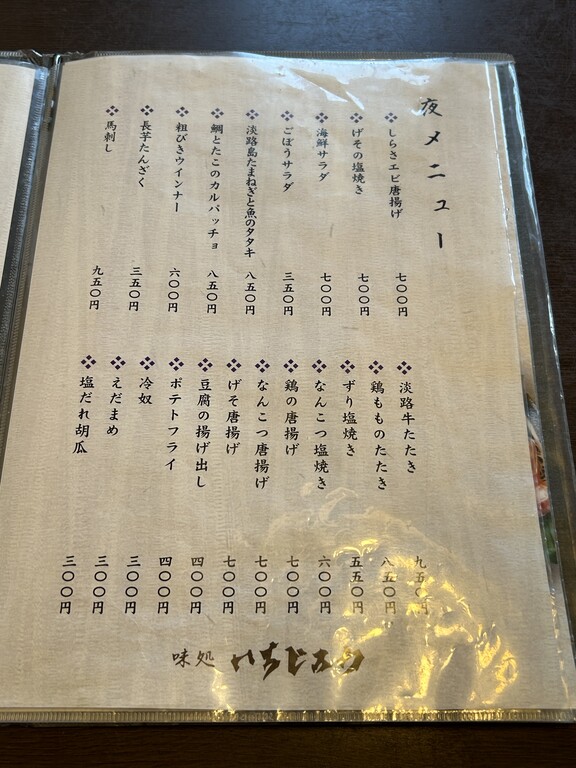 夜メニュー
しらさエビ唐揚げ 七〇〇円
げその塩焼き 七〇〇円
海鮮サラダ 七〇〇円
ごぼうサラダ 三五〇円
淡路島たまねぎと魚のタタキ 八五〇円
鯛とたこのカルパッチョ 八五〇円
粗びきウインナー 六〇〇円
長芋たんざく 三五〇円
馬刺し 九五〇円
淡路牛たたき 九五〇円
鶏もものたたき 八五〇円
ずり塩焼き 五五〇円
なんこつ塩焼き 六〇〇円
鶏の唐揚げ 七〇〇円
なんこつ唐揚げ 七〇〇円
げそ唐揚げ 七〇〇円
豆腐の揚げ出し 四〇〇円
ポテトフライ 四〇〇円
冷奴 三〇〇円
えだまめ 三〇〇円
塩だれ胡瓜 三〇〇円
味処